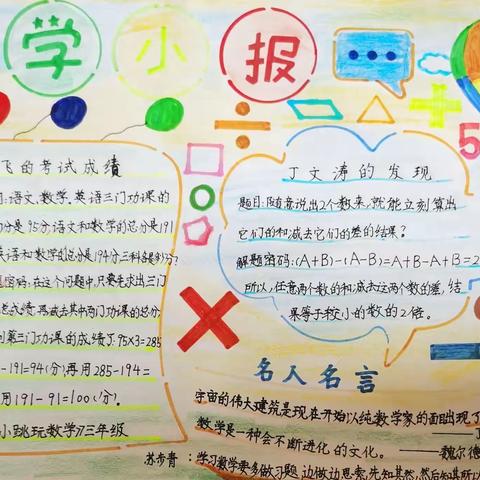 学小报
飞的考试成绩
语文、数学、英语三门功课的
分是95分,语文和数学的总分是191
英语和数学的总分是194分,三科各是多少?
密码:在这个问题中,只要先求出三门
总成绩,再减去其中两门功课的总分
第三门功课的成绩了.95×3=285
-191=94(分)再用285-194=
用191-91=100(分)。
小跳玩数学》三年级
丁文涛的发现
题目:随意说出2个数来,就能立刻算出
它们的和减去它们的差的结果?
解题密码:(A+B)-(A-B)=A+B-A+B=2
所以,任意两个数的和减去这两个数的差,结
果等于较小的数的2倍。
5
名人名言
宇宙的伟大建筑是现在开始以纯数学家的面目出现了
数学是一种会不断进化的文化。——魏尔德
苏步青:学习数学要多做习题,边做边思索,先知其然,然后知其所以